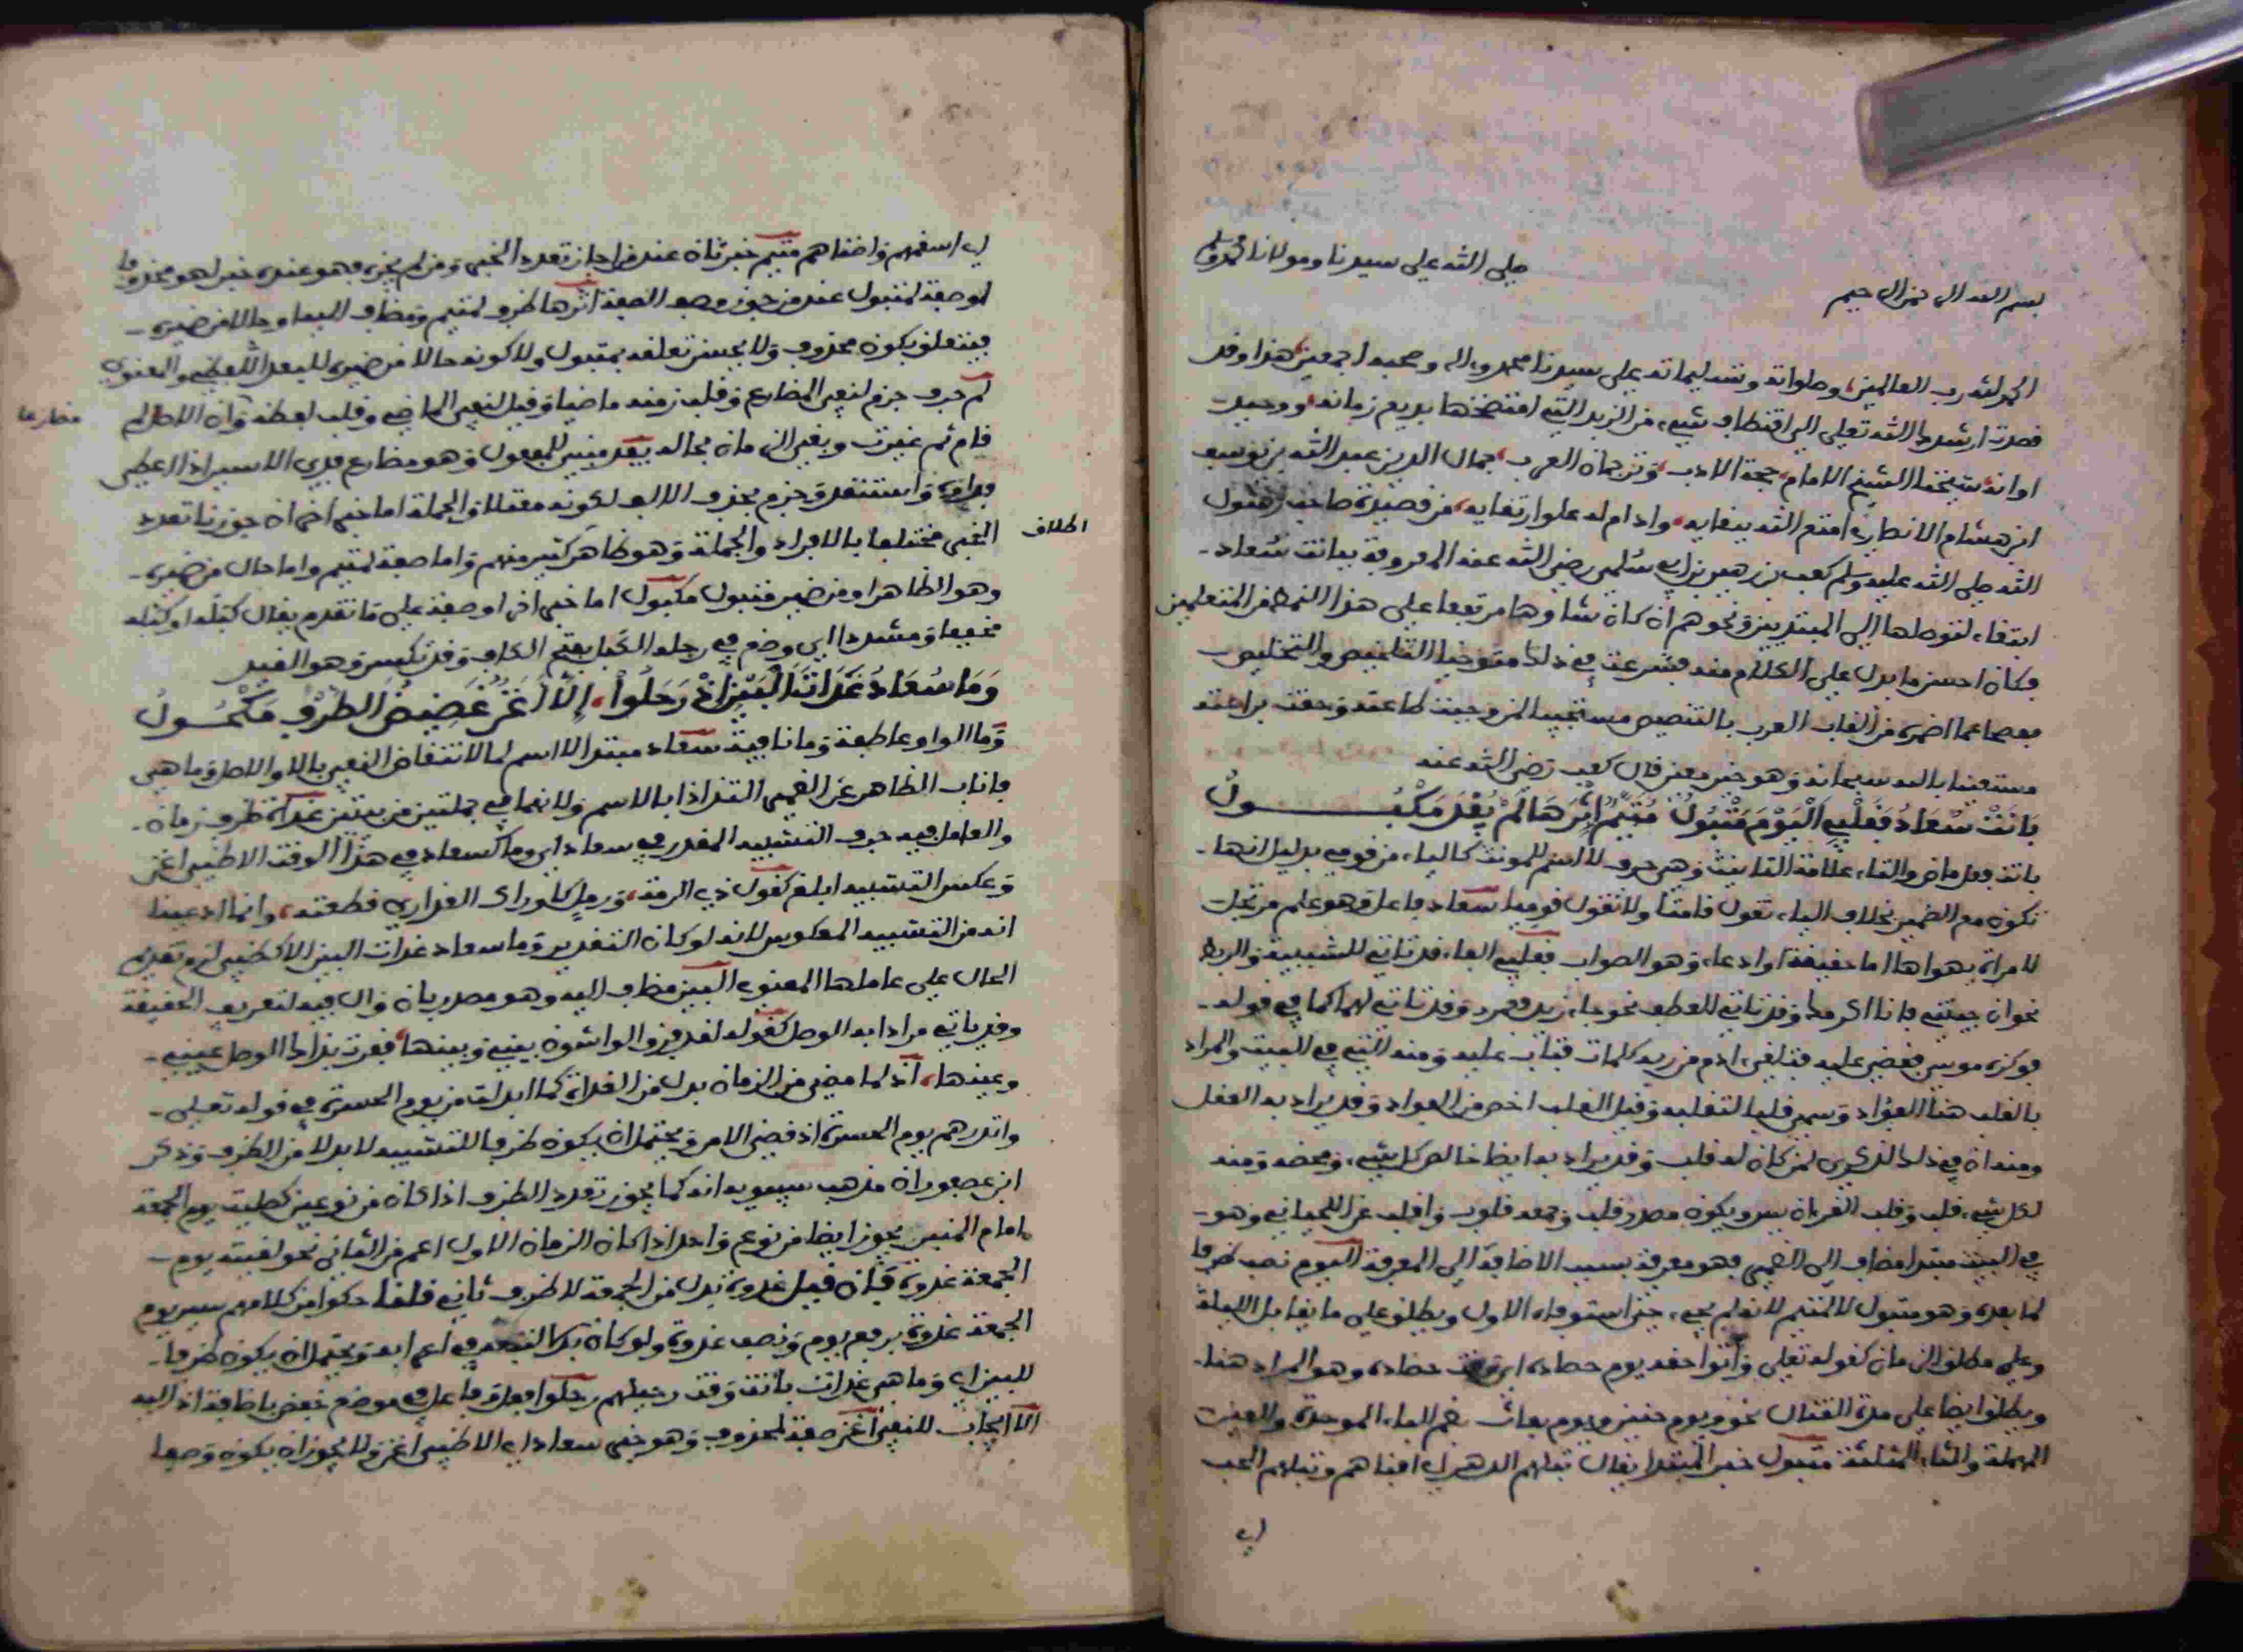 بسم الله الرحمن الرحيم
صلى الله على سيدنا ومولانا محمد وسلم
الحمد لله رب العالمين وصلواته وتسليماته على سيدنا محمد واله وصحبه اجمعين هذا وقد
قصدت ارشدك الله تعلى الى اقتطاف شيء من الزبد التي امتخضها بديع زمانه ووحيد
اوانه شيخنا الشيخ الامام حجة الادب وترجمان العرب جمال الدين عبد الله بن يوسف
ابن هشام الانصاري امتع الله ببقايه وادام له علو ارتقايه من قصيدة صاحب رسول
الله صلى الله عليه وسلم كعب بن زهير بن ابي سلمى رضي الله عنه المعروفة ببانت سعاد
ابتغاء لتوصلها الى المبتديين ونحوهم ان كان شاوها مرتفعا على هذا النمط من المتعلمين
وكان احسن ما يدل على الكلام منه فشرعت في ذلك متوخيا التلخيص والتخليص
مفصحا عما اضمره من الغاب العرب بالتنصيص مستجيبا لمن وجبت طاعته وحقت براعته
مستعينا بالله سبحانه وهو خير معين قال كعب رضي الله عنه
بَانَتْ سُعَادُ فَقَلْبِي الْيَوْمَ مَتْبُولُ مُتَيَّمٌ إِثْرَهَا لَمْ يُفْدَ مَكْبُولُ
بانت فعل ماض والتاء علامة التانيث وهي حرف لا اسم للمونث كالياء من قومي بدليل انها
تكون مع الضمير بخلاف الياء تقول قامتا ولا تقول قوميا سعاد فاعل وهو علم مرتجل
لامراة يهواها اما حقيقة او ادعاء وهو الصواب فقلبي الفاء قد تاتي للسببية والربط
نحو ان جيتني فانا اكرمك وقد تاتي للعطف نحو جاء زيد فعمرو وقد تاتي لهما كما في قوله
فوكزه موسى فقضى عليه فتلقى ادم من ربه كلمات فتاب عليه ومنه التي في البيت والمراد
بالقلب هنا الفؤاد وسمي قلبا لتقلبه وقيل القلب اخص من الفواد وقد يراد به العقل
ومنه ان في ذلك لذكرى لمن كان له قلب وقد يراد به ايضا خالص كل شيء ومحضه ومنه
لكل شيء قلب وقلب القرءان يس ويكون مصدر قلب وجمعه قلوب واقلب عن اللحياني وهو
في البيت مبتدا مضاف الى الضمير فهو معرفة بسبب الاضافة الى المعرفة اليوم نصب ظرفا
لما بعده وهو متبول لا لمتيم لانه لم يجيء حتى استوفاه الاول ويطلق على ما يقابل الليلة
وعلى مطلق الزمان كقوله تعلى وءاتوا حقه يوم حصاده اي وقت حصاده وهو المراد هنا
ويطلق ايضا على مدة القتال نحو ويوم حنين ويوم بعاث بضم الباء الموحدة والعين
المهملة والثاء المثلثة متبول خبر المبتدا يقال تبلهم الدهر اي افناهم وتبلهم الحب
اي
اي اسقمهم واضناهم متيم خبر ثان عند من اجاز تعدد الخبر ومن لم يجزه فهو عنده خبر لهو محذوفا
او صفة لمتبول عند من جوز وصف الصفة اثرها ظرف لمتيم ومضاف اليها وحال من ضميره
فيتعلق بكون محذوف ولا يحسن تعلقه بمتبول ولا كونه حالا من ضميره للبعد اللفظي والمعنوي
لم حرف جزم لنفي المضارع وقلب زمنه ماضيا وقيل لنفي الماضي وقلب لفظه وان الاصل لم
مضارعا
قام ثم غيرت وبقي الزمان بحاله يفد مبني للمفعول وهو مضارع فدى الاسير اذا اعطى
فداه واستنقذه جزم بحذف الالف لكونه معتلا والجملة اما خبر اخر ان جوزنا تعدد
الخبر مختلفا بالافراد والجملة وهو ظاهر كثير منهم واما صفة لمتيم واما حال من ضميره
اطلاق
وهو الظاهر او من ضمير متبول مكبول اما خبر اخر او صفة على ما تقدم يقال كبله او كبله
مخففا ومشددا اي وضع في رجله الكبل بفتح الكاف وقد تكسر وهو القيد
وَمَا سُعَادُ غَدَاةَ الْبَيْنِ إِذْ رَحَلُوا إِلَّا أَغَنُّ غَضِيضُ الطَّرْفِ مَكْحُولُ
وما الواو عاطفة وما نافية سعاد مبتدا لا اسم لما لانتقاض النفي بالا والاصل وما هي
فاناب الظاهر عن الضمير التذاذا بالاسم ولانهما في جملتين من بيتين غداة ظرف زمان
والعامل فيه حرف التشبيه المقدر في سعاد اي وما كسعاد في هذا الوقت الا ظبي اغن
وعكس التشبيه ابلغ كقول ذي الرمة ورمل كاوراك العذارى قطعته وانما ادعينا
انه من التشبيه المعكوس لانه لو كان التقدير وما سعاد غداة البين الا كظبي لزم تقديم
الحال على عاملها المعنوي البين مضاف اليه وهو مصدر بان وال فيه لتعريف الحقيقة
وقد ياتي مرادا به الوصل كقوله لقد فرق الواشون بيني وبينها فقرت بذاك الوصل عيني
وعينها اذ لما مضى من الزمان بدل من الغداة كما ابدلت من يوم الحسرة في قوله تعلى
وانذرهم يوم الحسرة اذ قضي الامر ويحتمل ان يكون ظرفا للتشبيه لا بدلا من الظرف وذكر
ابن عصفور ان مذهب سيبويه انه كما يجوز تعدد الظرف اذا كان من نوعين كصليت يوم الجمعة
امام المنبر يجوز ايضا من نوع واحد اذا كان الزمان الاول اعم من الثاني نحو لقيته يوم
الجمعة غدوة فان قيل غدوة بدل من الجمعة لا ظرف ثاني قلنا حكوا من كلامهم سير يوم
الجمعة غدوة برفع يوم ونصب غدوة ولو كان بدلا لتبعه في اعرابه ويحتمل ان يكون ظرفا
للبين اي وما هي غداة بانت وقت رحيلهم رحلوا فعل وفاعل في موضع خفض باضافة اذ اليه
الا ايجاب للنفي اغن صفة لمحذوف وهو خبر سعاد اي الا ظبي اغن ولا يجوز ان يكون وصفا